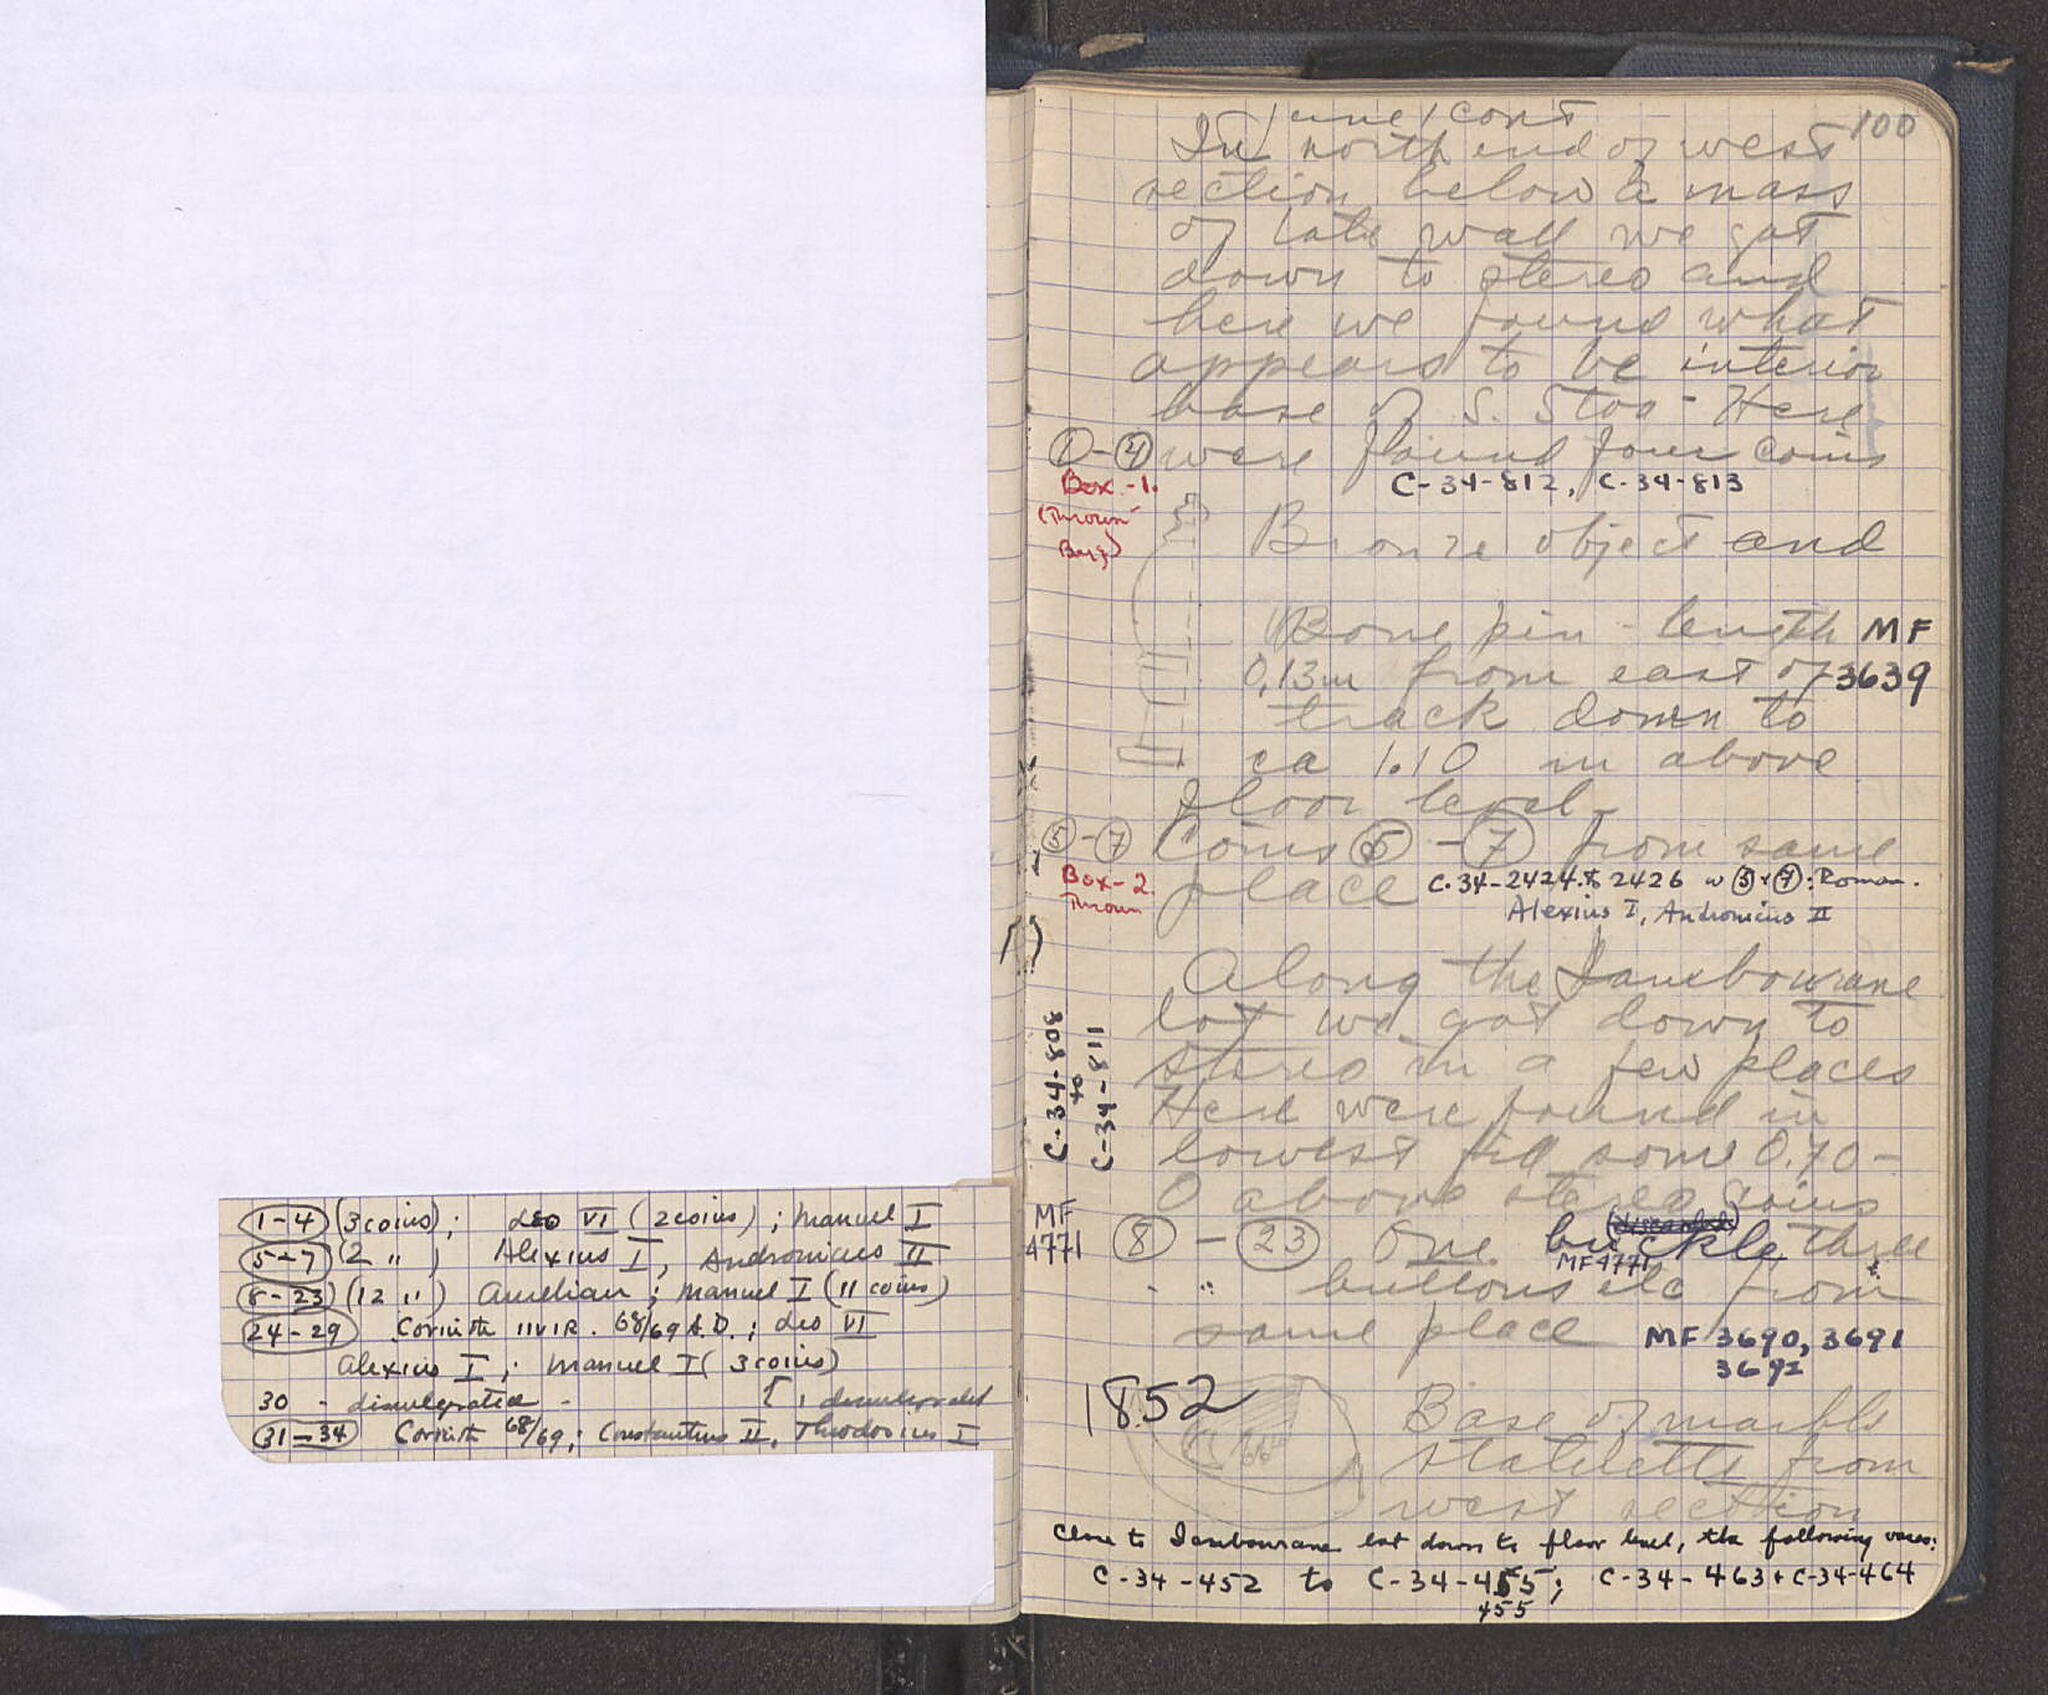 1-4 (3 coins); Leo VI (2 coins); Manuel I
5-7 (2 " ) Alexius I, Andronicus II
8-23 (12 ") Aurelian; Manuel I (11 coins)
24-29 Corinth IIVIR. 68/69 A.D.; Leo VI
Alexius I; Manuel I (3 coins)
30 - disintegrated - [1 disintegrated
31-34 Corinth 68/69; Constantius II, Theodosius I
100
June 1 cont
In north end of west
section below a mass
of late wall we got
down to stereo and
here we found what
appears to be interior
base of S. Stoa - Here
1 - 4 were found four coins
Box-1. C-34-812, C-34-813
(Thrown
Byz)
Bronze object and
Bone pin - length MF
0,13m from east of 3639
track down to
ca 1.10 m above
floor level-
5-7 Coins 5 - 7 from same
Box-2. place C-34-2424 to 2426 w 5 + 7: Roman.
Thrown Alexius I, Andronicus II
Along the Iambourane
lot we got down to
stereo in a few places
Here were found in
lowest fill some 0.70-
0 above stereo coins
C-34-803
to
C-34-811
MF
4771
8 - 23 One buckle three
(discarded)
MF4771
buttons etc from
same place MF 3690, 3691
3692
1852
Base of marble
statuette from
west section
Close to Iambourane lot down to floor level, the following vases:
C-34-452 to C-34-455; C-34-463 + C-34-464
455